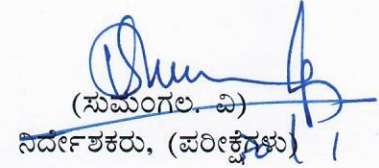 (ಸುಮಂಗಲ. ವಿ)
ನಿರ್ದೇಶಕರು, (ಪರೀಕ್ಷೆಗಳು)